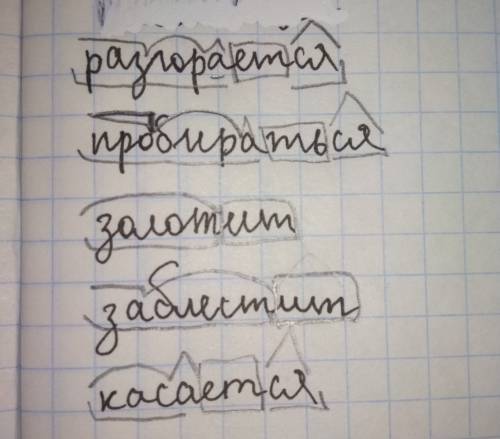 разгорается
пробираться
золотит
заблестит
касается